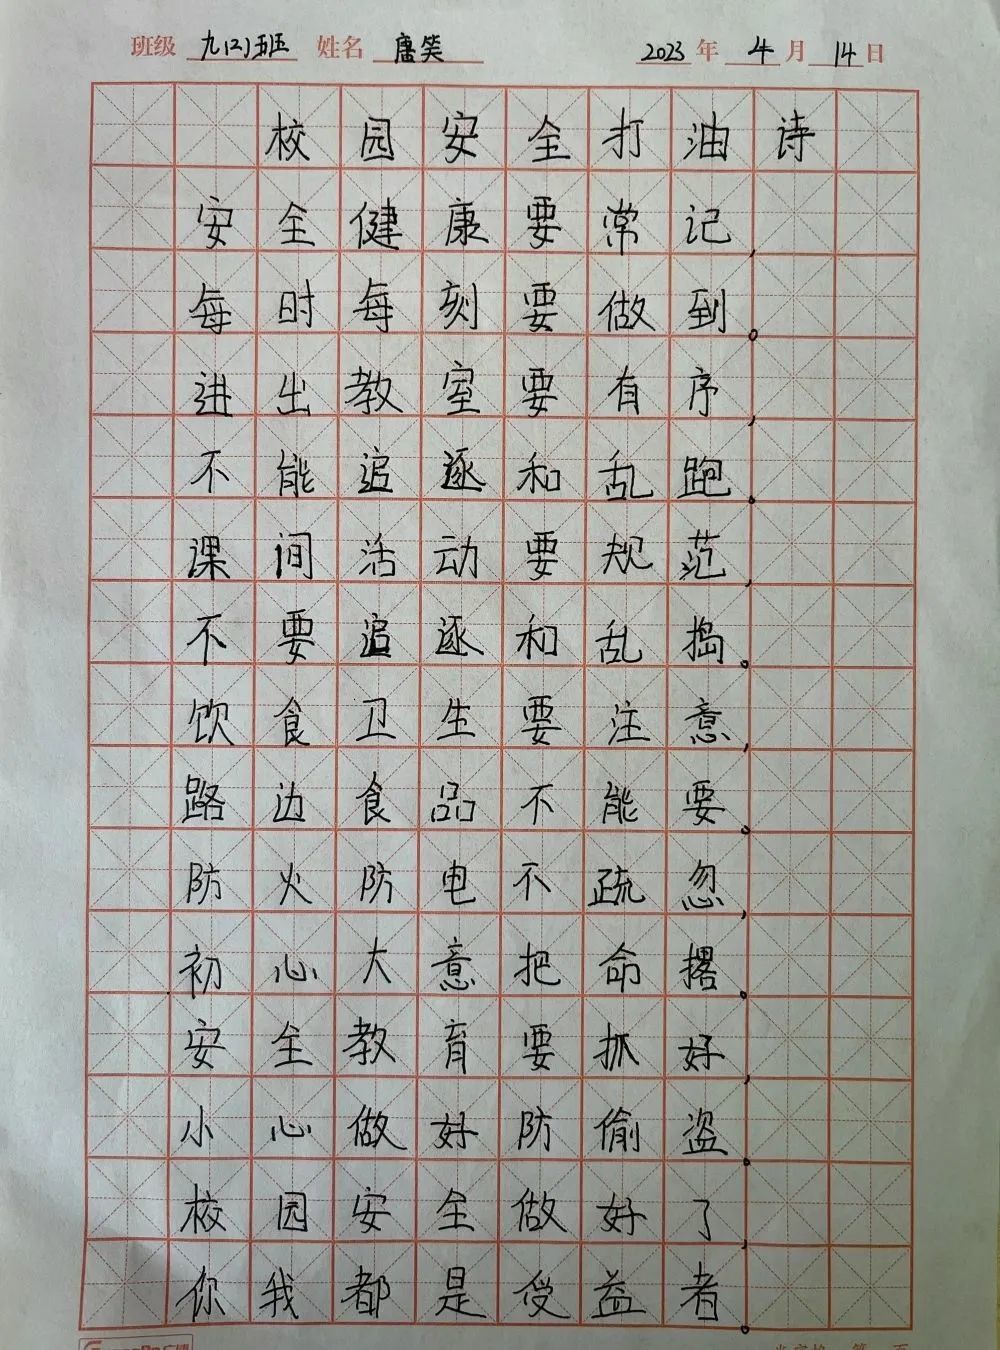 班级 九(2)班 姓名 唐笑 2023年 4月 14日
校园安全打油诗
安全健康要常记,
每时每刻要做到。
进出教室要有序,
不能追逐和乱跑。
课间活动要规范,
不要追逐和乱捣。
饮食卫生要注意,
路边食品不能要。
防火防电不疏忽,
初心大意把命撂。
安全教育要抓好,
小心做好防偷盗。
校园安全做好了,
你我都是受益者。